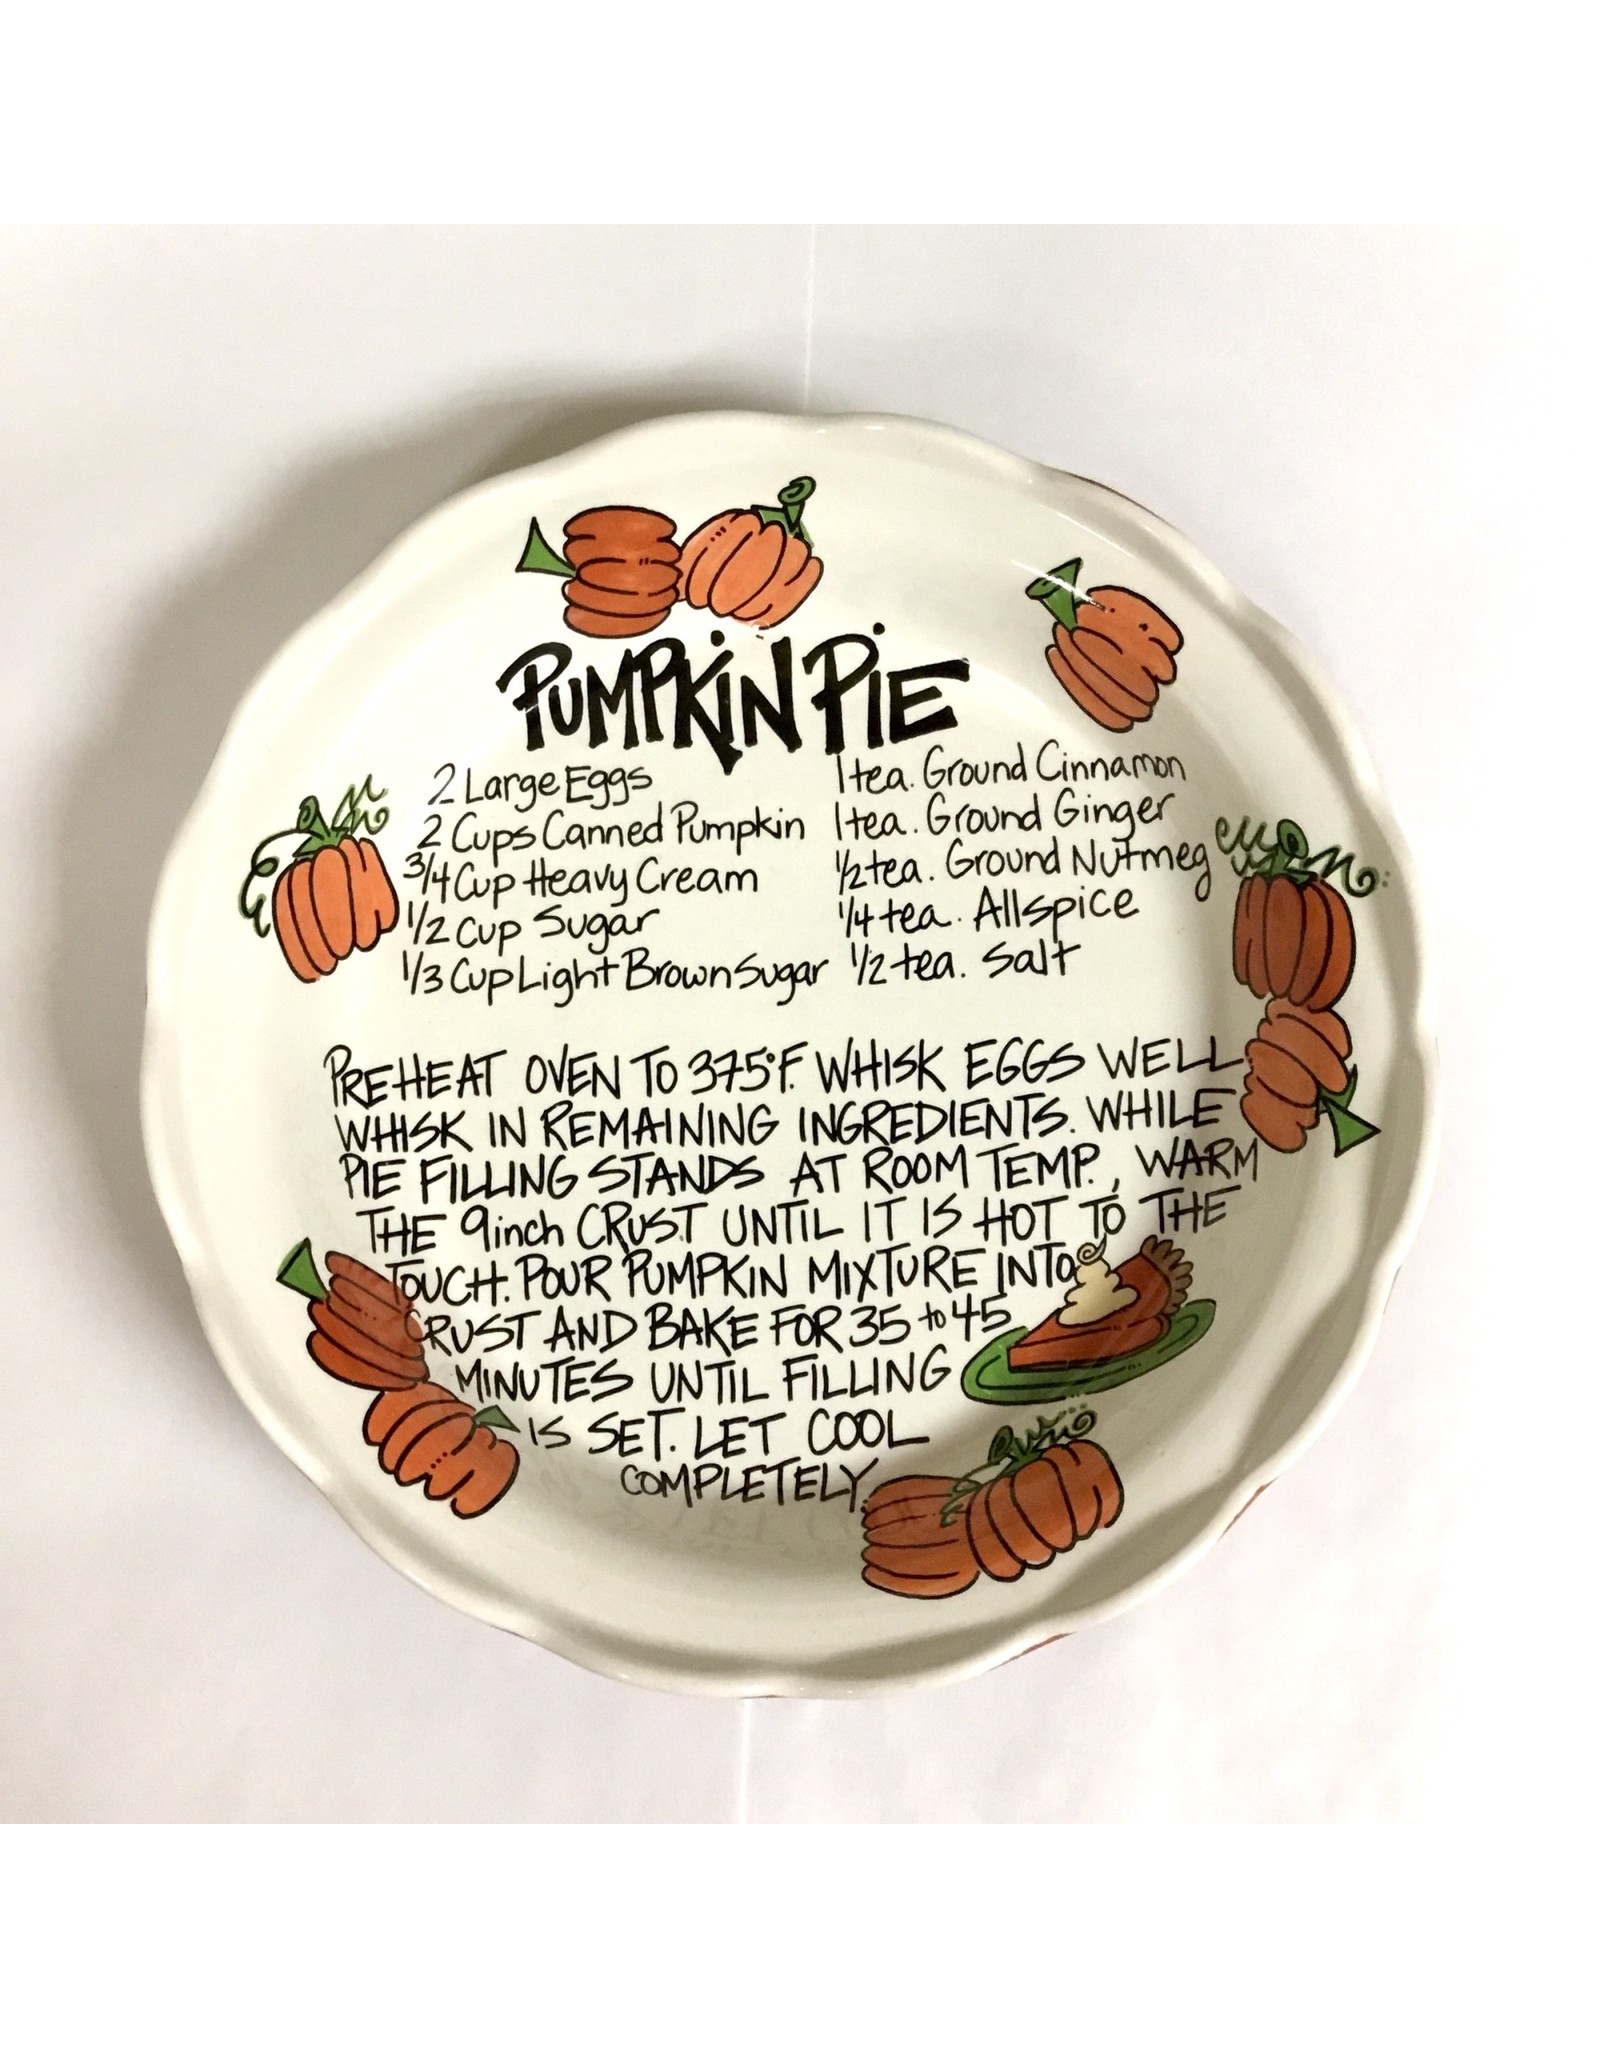 PUMPKiN PiE
2 Large Eggs
2 Cups Canned Pumpkin
3/4 Cup Heavy Cream
1/2 cup Sugar
1/3 Cup Light Brown Sugar
1 tea. Ground Cinnamon
1 tea. Ground Ginger
1/2 tea. Ground Nutmeg
1/4 tea. Allspice
1/2 tea. Salt
PREHEAT OVEN TO 375°F. WHISK EGGS WELL.
WHISK IN REMAINING INGREDIENTS. WHILE
PIE FILLING STANDS AT ROOM TEMP., WARM
THE 9inch CRUST UNTIL IT IS HOT TO THE
TOUCH. POUR PUMPKIN MIXTURE INTO
CRUST AND BAKE FOR 35 to 45
MINUTES UNTIL FILLING
IS SET. LET COOL
COMPLETELY.